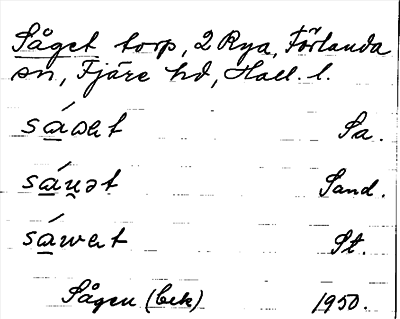 Såget torp, 2 Rya, Förlanda
sn, Fjäre hd, Hall. l.
sáωet Sa.
sáu̯ət Sand.
sáwet St.
Sågen (bek) 1950.